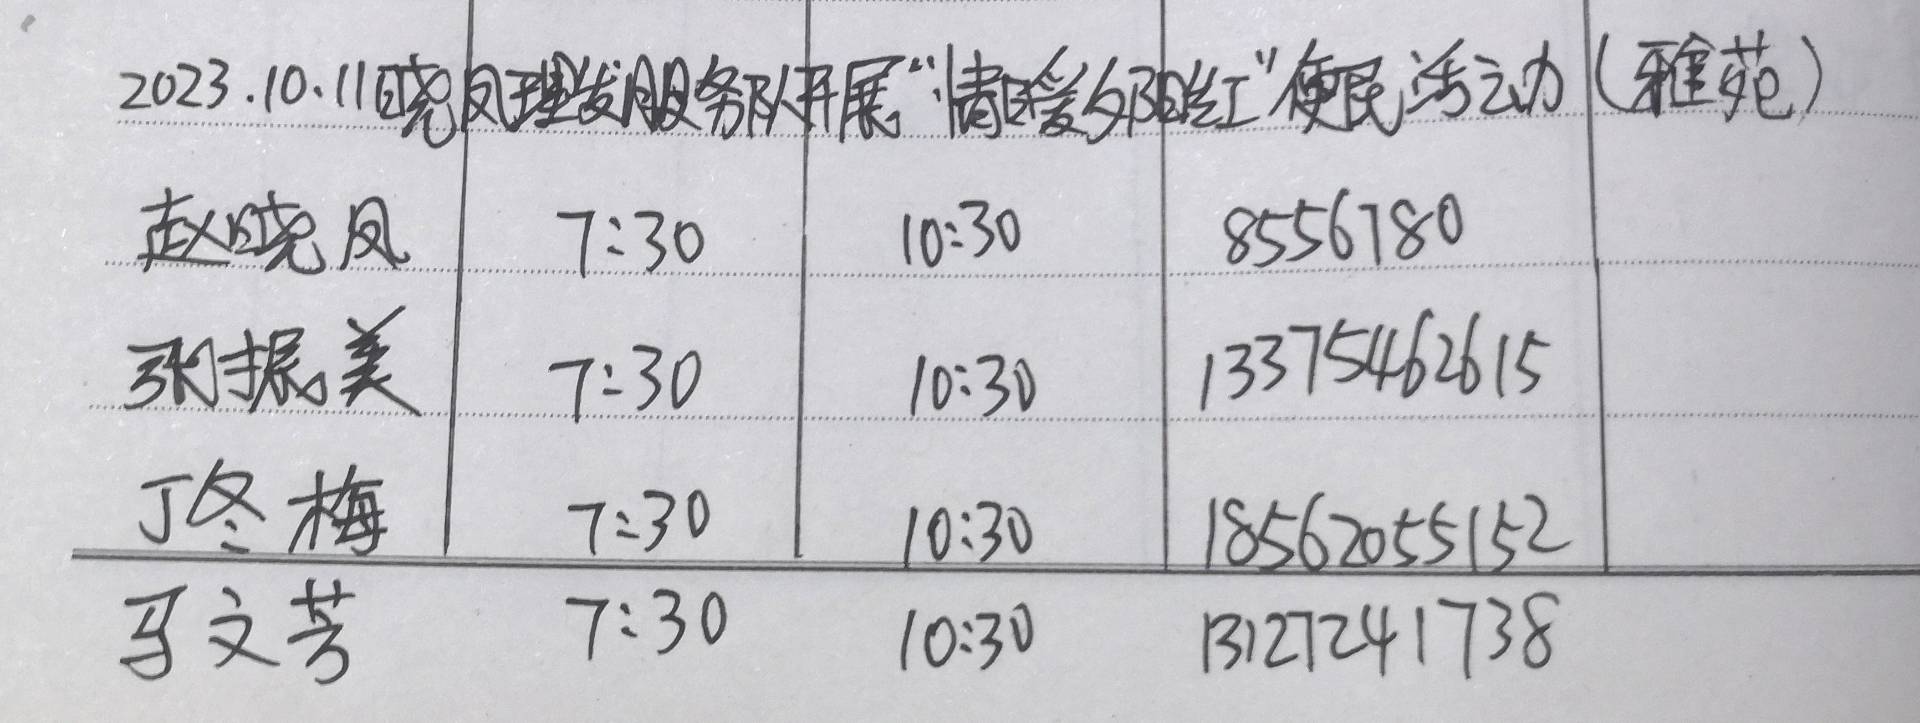 2023.10.11晓凤理发服务队开展“情暖夕阳红”便民活动(雅苑)
赵晓凤 7:30 10:30 8556780
张振美 7:30 10:30 13375462615
丁冬梅 7:30 10:30 18562055152
马文芳 7:30 10:30 13127241738